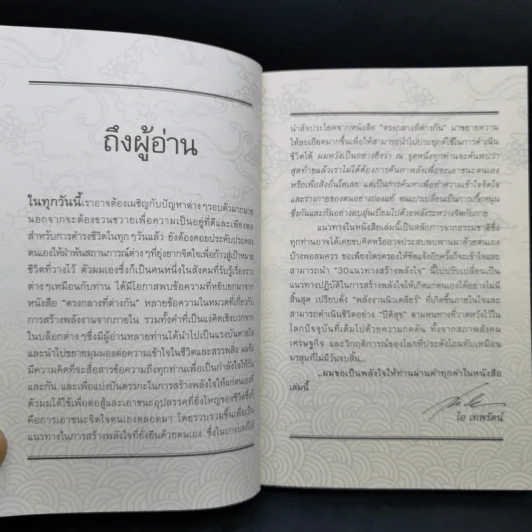 ถึงผู้อ่าน
ในทุกวันนี้เราอาจต้องเผชิญกับปัญหาต่างๆรอบตัวมากมาย
นอกจากจะต้องขวนขวายเพื่อความเป็นอยู่ที่ดีและเพียงพอ
สำหรับการดำรงชีวิตในทุกๆวันแล้ว ยังต้องคอยประคับประคอง
ตนเองให้ฝ่าพ้นสถานการณ์ต่างๆที่ยุ่งยากจิตใจเพื่อก้าวสู่เป้าหมาย
ชีวิตที่วางไว้ ตัวผมเองซึ่งก็เป็นคนหนึ่งในสังคมที่รับรู้เรื่องราว
ต่างๆเหมือนกับท่าน ได้มีโอกาสพบข้อความที่หยิบยกมาจาก
หนังสือ "ตรงกลางที่ต่างกัน" หลายข้อความในหมวดที่เกี่ยวกับ
การสร้างพลังงานจากภายใน รวมทั้งคำที่เป็นแง่คิดเชิงบวกจาก
ในบล็อกต่างๆซึ่งมีผู้อ่านหลายท่านได้นำไปเป็นแรงบันดาลใจ
และนำไปขยายมุมมองต่อความเข้าใจในชีวิตและสรรพสิ่ง ผมจึง
มีความคิดที่จะสื่อสารข้อความถึงทุกท่านเพื่อเป็นกำลังใจให้กัน
และกัน และเพื่อแบ่งปันตรรกะในการสร้างพลังใจให้แก่ตนเองที่
ตัวผมได้ใช้เพื่อต่อสู้และเอาชนะอุปสรรคที่ยิ่งใหญ่ของชีวิตซึ่งก็
คือการเอาชนะจิตใจตนเองตลอดมา โดยรวบรวมขึ้นเพื่อเป็น
แนวทางในการสร้างพลังใจที่ยั่งยืนด้วยตนเอง ซึ่งในบางบทก็ได้
นำสิ่งประโยคจากหนังสือ "ตรงกลางที่ต่างกัน" มาขยายความ
ให้ละเอียดมากขึ้นเพื่อให้สามารถนำไปประยุกต์ใช้ในการดำเนิน
ชีวิตได้ ผมหวังเป็นอย่างยิ่งว่า ณ จุดหนึ่งทุกท่านจะค้นพบว่า
สุดท้ายแล้วเราไม่ได้ต้องการค้นหาพลังเพื่อจะเอาชนะตนเอง
หรือเพื่อสิ่งอื่นใดเลย แต่เป็นการค้นหาเพื่อทำความเข้าใจจิตใจ
และร่างกายของตนอย่างถ่องแท้ จนแปรเปลี่ยนเป็นการเกื้อหนุน
ซึ่งกันและกันอย่างอบอุ่นเปี่ยมไปด้วยพลังระหว่างจิตกับกาย
แนวทางในหนังสือเล่มนี้เป็นหลักการจากธรรมชาติซึ่ง
ทุกท่านอาจได้เคยขบคิดหรืออาจประสบพบผ่านมาด้วยตนเอง
บ้างพอสมควร ขอเพียงใคร่ครองให้ชัดแจ้งอีกครั้งก็จะเข้าใจและ
สามารถนำ "30แนวทางสร้างพลังใจ" นี้ไปปรับเปลี่ยนเป็น
แนวทางปฏิบัติในการสร้างพลังใจให้เกิดแก่ตนเองได้อย่างไม่มี
สิ้นสุด เปรียบดั่ง "พลังงานนิวเคลียร์" ที่เกิดขึ้นภายในใจและ
สามารถดำเนินชีวิตอย่าง "ปีติสุข" ตามหนทางที่วาดหวังไว้ใน
โลกปัจจุบันที่เต็มไปด้วยความกดดัน ทั้งจากสภาพสังคม
เศรษฐกิจ และวิกฤติการณ์ของโลกที่ประดังโถมทับเหมือน
มรสุมที่ไม่มีวันจบสิ้น...
...ผมขอเป็นพลังใจให้ท่านผ่านคำทุกคำในหนังสือ
เล่มนี้
โอ เทพรัตน์